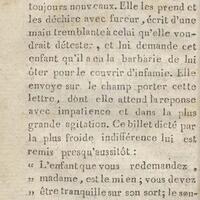 toujours nouveaux. Elle les prend et
les déchire avec fureur, écrit d'une
main tremblante à celui qu'elle vou-
drait détester, et lui demande cet
enfant qu'il a eu la barbarie de lui
ôter pour le couvrir d'infamie. Elle
envoye sur le champ porter cette
lettre, dont elle attend la réponse
avec impatience et dans la plus
grande agitation. Ce billet dicté par
la plus froide indifférence lui est
remis presqu'aussitôt :
« L'enfant que vous redemandez,
» madame, est le mien ; vous devez
» être tranquille sur son sort ; le sou-